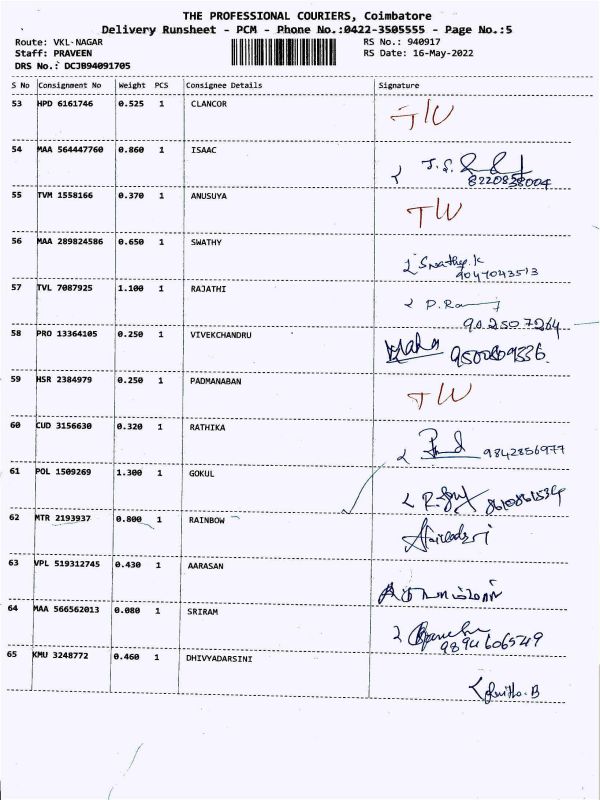 THE PROFESSIONAL COURIERS, Coimbatore
Delivery Runsheet - PCM - Phone No.:0422-3505555 - Page No.:5
Route: VKL-NAGAR RS No.: 940917
Staff: PRAVEEN RS Date: 16-May-2022
DRS No.: DCJB94091705
S No Consignment No Weight PCS Consignee Details Signature
53 HPD 6161746 0.525 1 CLANCOR T/W
54 MAA 564447760 0.860 1 ISAAC J.S.
8220838004
55 TVM 1558166 0.370 1 ANUSUYA TW
56 MAA 289824586 0.650 1 SWATHY Swathy.K
9047043513
57 TVL 7087925 1.100 1 RAJATHI P.
902507264
58 PRO 13364105 0.250 1 VIVEKCHANDRU
9500809336.
59 HSR 2384979 0.250 1 PADMANABAN TW
60 CUD 3156630 0.320 1 RATHIKA 9842856977
61 POL 1509269 1.300 1 GOKUL
62 MTR 2193937 0.800 1 RAINBOW
63 VPL 519312745 0.430 1 AARASAN
64 MAA 566562013 0.080 1 SRIRAM
9894606549
65 KMU 3248772 0.460 1 DHIVYADARSINI